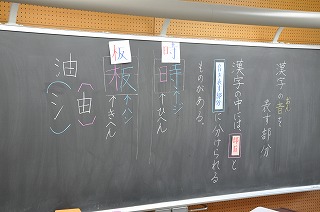 漢字の音を
おん
表す部分
漢字の中には、部首と
音を表す部分に分けられる
ものがある。
時
時
←ジ
←ひへん
板
板
←ハン
←きへん
油
(由)
(シ)